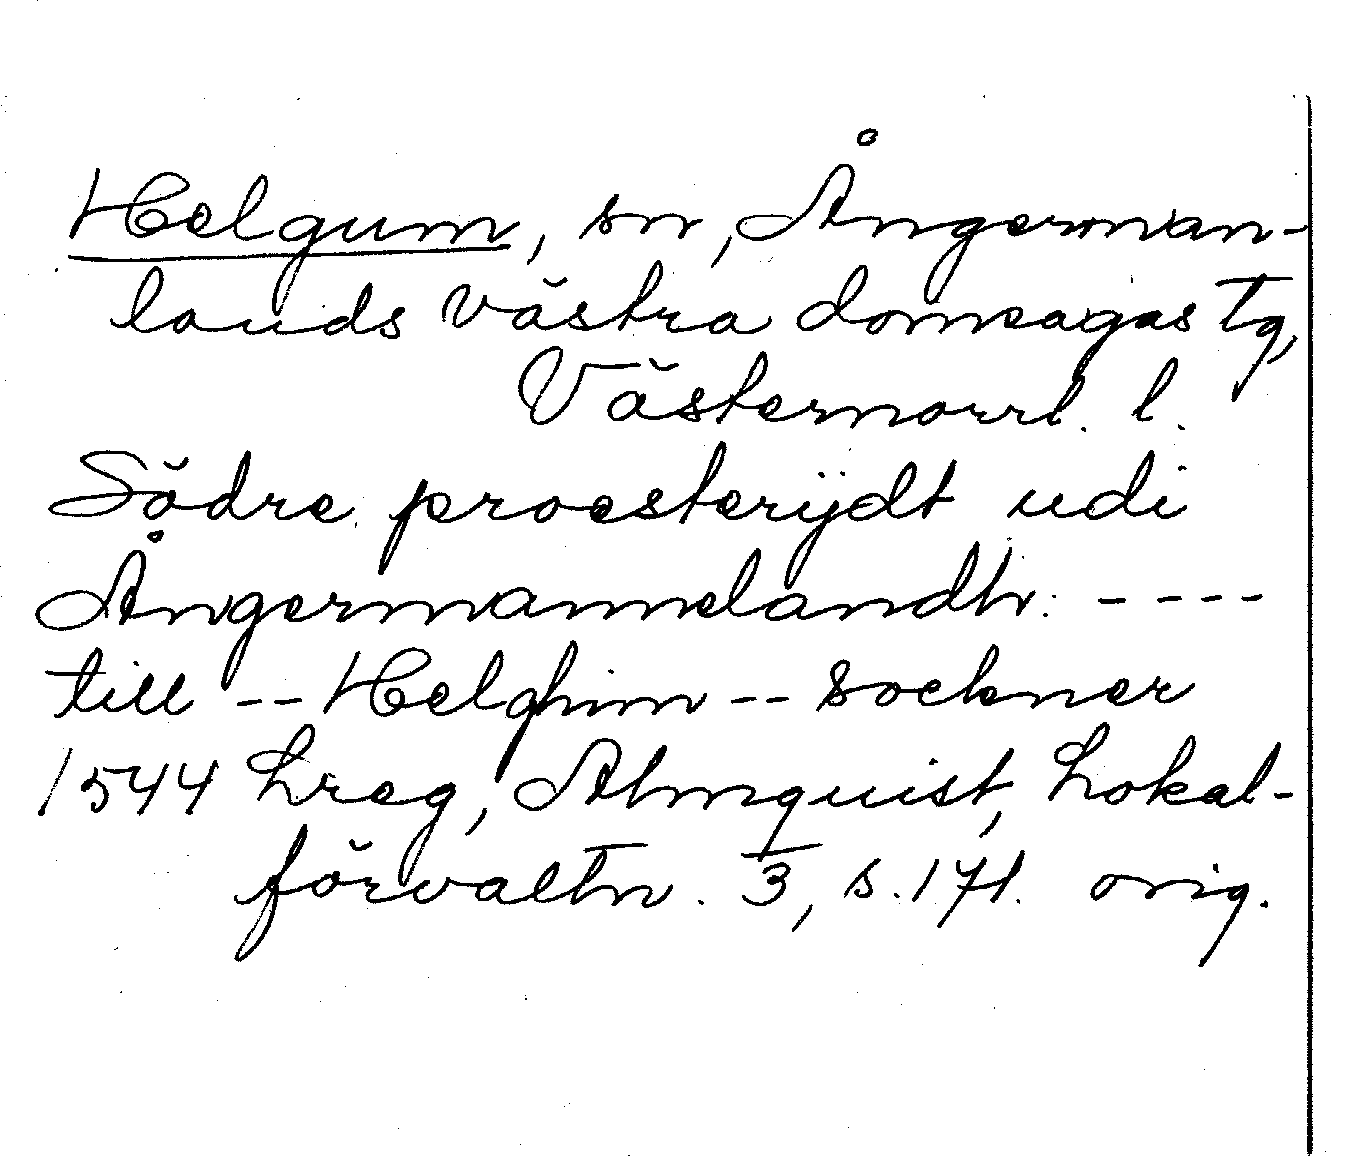 Helgum, sn, Ångerman-
lands västra domsagas Tg,
Västernorrl. l.
Södre proesterijdt udi
Ångermannelandh: ----
till -- Helghim -- sockner
1544 Lreg, Almquist, Lokal-
förvaltn. 3, s. 171. orig.